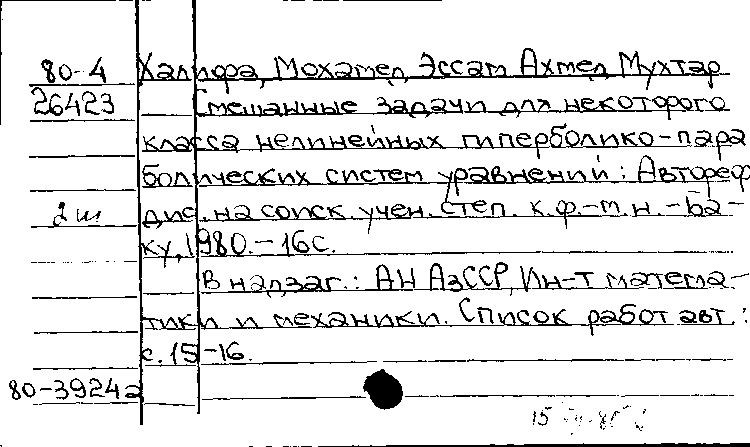 80-4 Халифа, Мохамед Эссам Ахмед Мухтар
26423 Смешанные задачи для некоторого
класса нелинейных гиперболико-пара
болических систем уравнений: Автореф
2 ш дис. на соиск. учен. степ. к.ф.-м.н. - Ба-
ку, 1980. - 16 с.
В надзаг.: АН АзССР, Ин-т матема-
тики и механики. Список работ авт.:
с. 15-16.
80-3924а